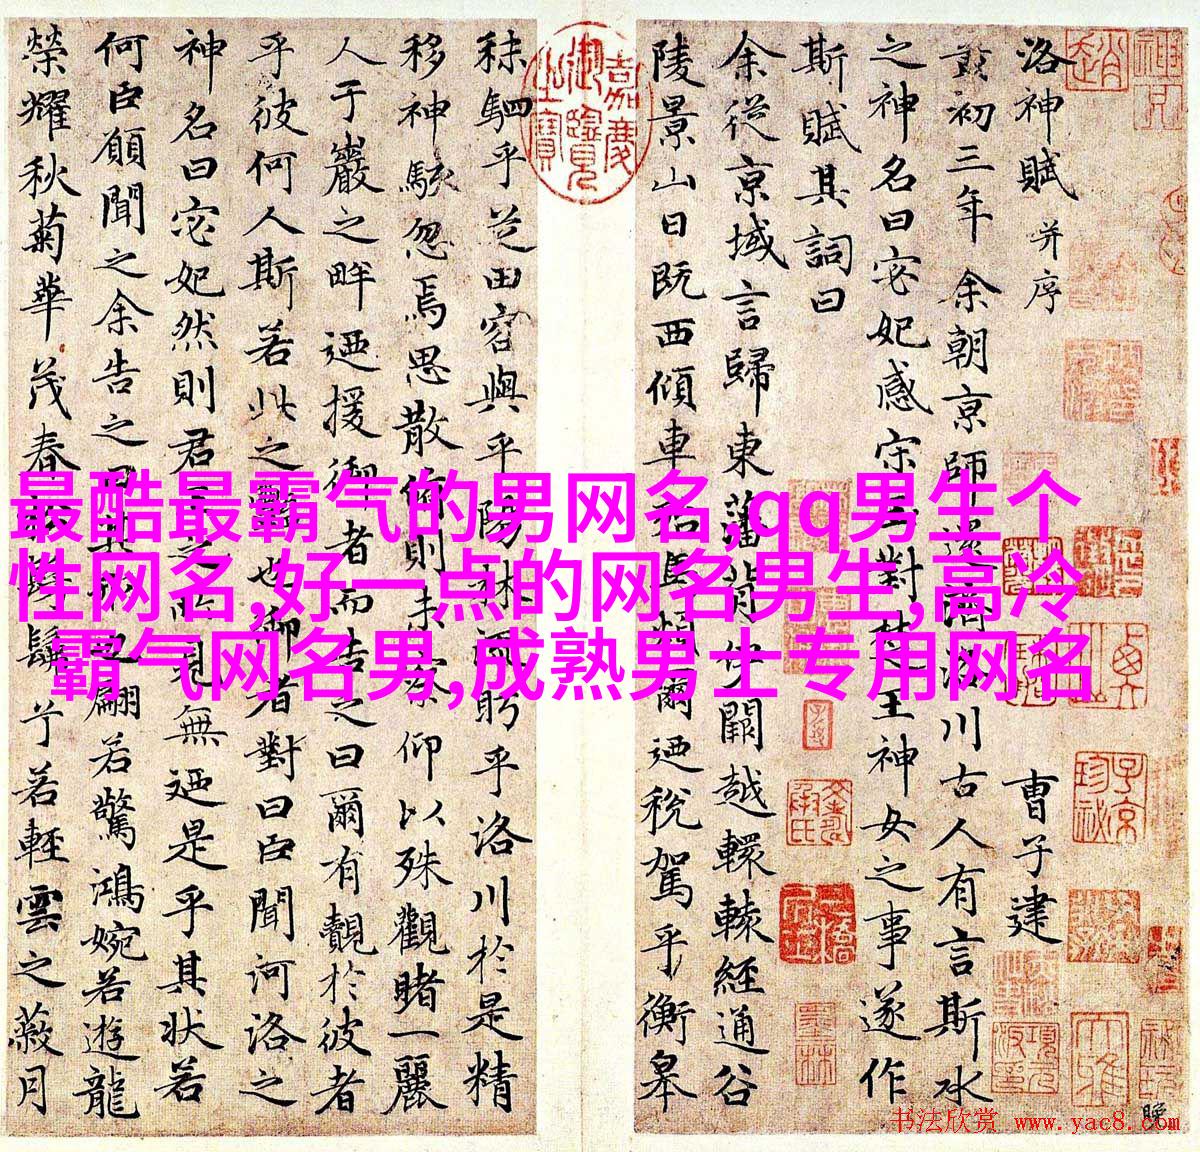 洛神賦 并序 曹子建
黃初三年余朝京師還濟洛川古人有言斯水
之神名曰宓妃感宋玉對楚王神女之事遂作
斯賦其詞曰
余從京域言歸東藩背伊闕越轘轅經通谷
陵景山日既西傾車殆馬煩爾迺稅駕乎衡皋
秣駟乎芝田容與乎陽林流眄乎洛川於是精
移神駭忽焉思散俯則未察仰以殊觀睹一麗
人于巖之畔迺援御者而告之曰爾有覿於彼者
乎彼何人斯若此之豔也御者對曰臣聞河洛之
神名曰宓妃然則君王之所見無迺是乎其狀若
何臣願聞之余告之曰其形也翩若驚鴻婉若遊龍
榮耀秋菊華茂春松髣髴兮若輕雲之蔽月
嘉慶御覽之寶
最酷最霸气的男网名,qq男生个
性网名,好一点的网名男生,高冷
霸气网名男,成熟男士专用网名
书法欣赏 www.yac8.com